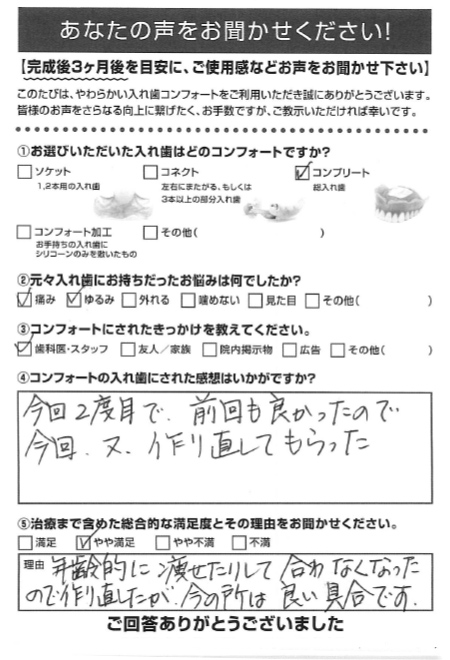 あなたの声をお聞かせください!
【完成後3ヶ月後を目安に、ご使用感などお声をお聞かせ下さい】
このたびは、やわらかい入れ歯コンフォートをご利用いただき誠にありがとうございます。
皆様のお声をさらなる向上に繋げたく、お手数ですが、ご教示いただければ幸いです。
①お選びいただいた入れ歯はどのコンフォートですか?
☐ソケット ☐コネクト ☑コンプリート
1,2本用の入れ歯 左右にまたがる、もしくは 総入れ歯
3本以上の部分入れ歯
☐コンフォート加工 ☐その他( )
お手持ちの入れ歯に
シリコーンのみを敷いたもの
②元々入れ歯にお持ちだったお悩みは何でしたか?
☑痛み ☑ゆるみ ☐外れる ☐噛めない ☐見た目 ☐その他( )
③コンフォートにされたきっかけを教えてください。
☑歯科医・スタッフ ☐友人/家族 ☐院内掲示物 ☐広告 ☐その他( )
④コンフォートの入れ歯にされた感想はいかがですか?
今回2度目で、前回も良かったので
今回、又、作り直してもらった
⑤治療まで含めた総合的な満足度とその理由をお聞かせください。
☐満足 ☑やや満足 ☐やや不満 ☐不満
理由 年齢的に痩せたりして合わなくなった
ので作り直したが、今の所は良い具合です。
ご回答ありがとうございました